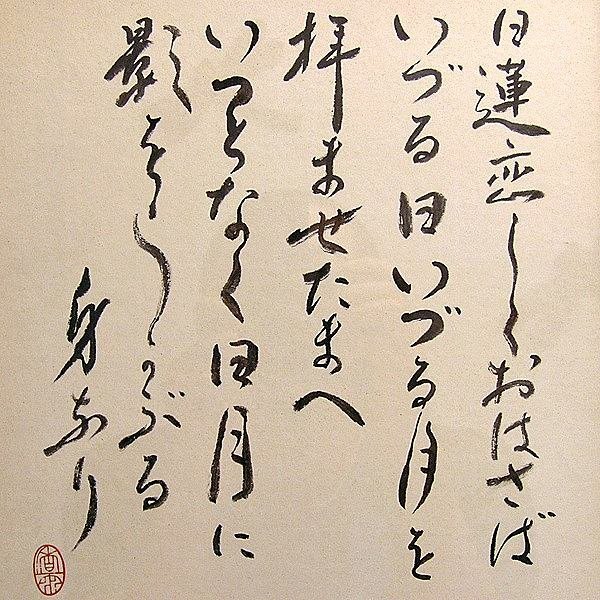 日蓮恋しくおはさば
いづる日いづる月を
拝ませたまへ
いつとなく日月に
影をうかぶる
身なり